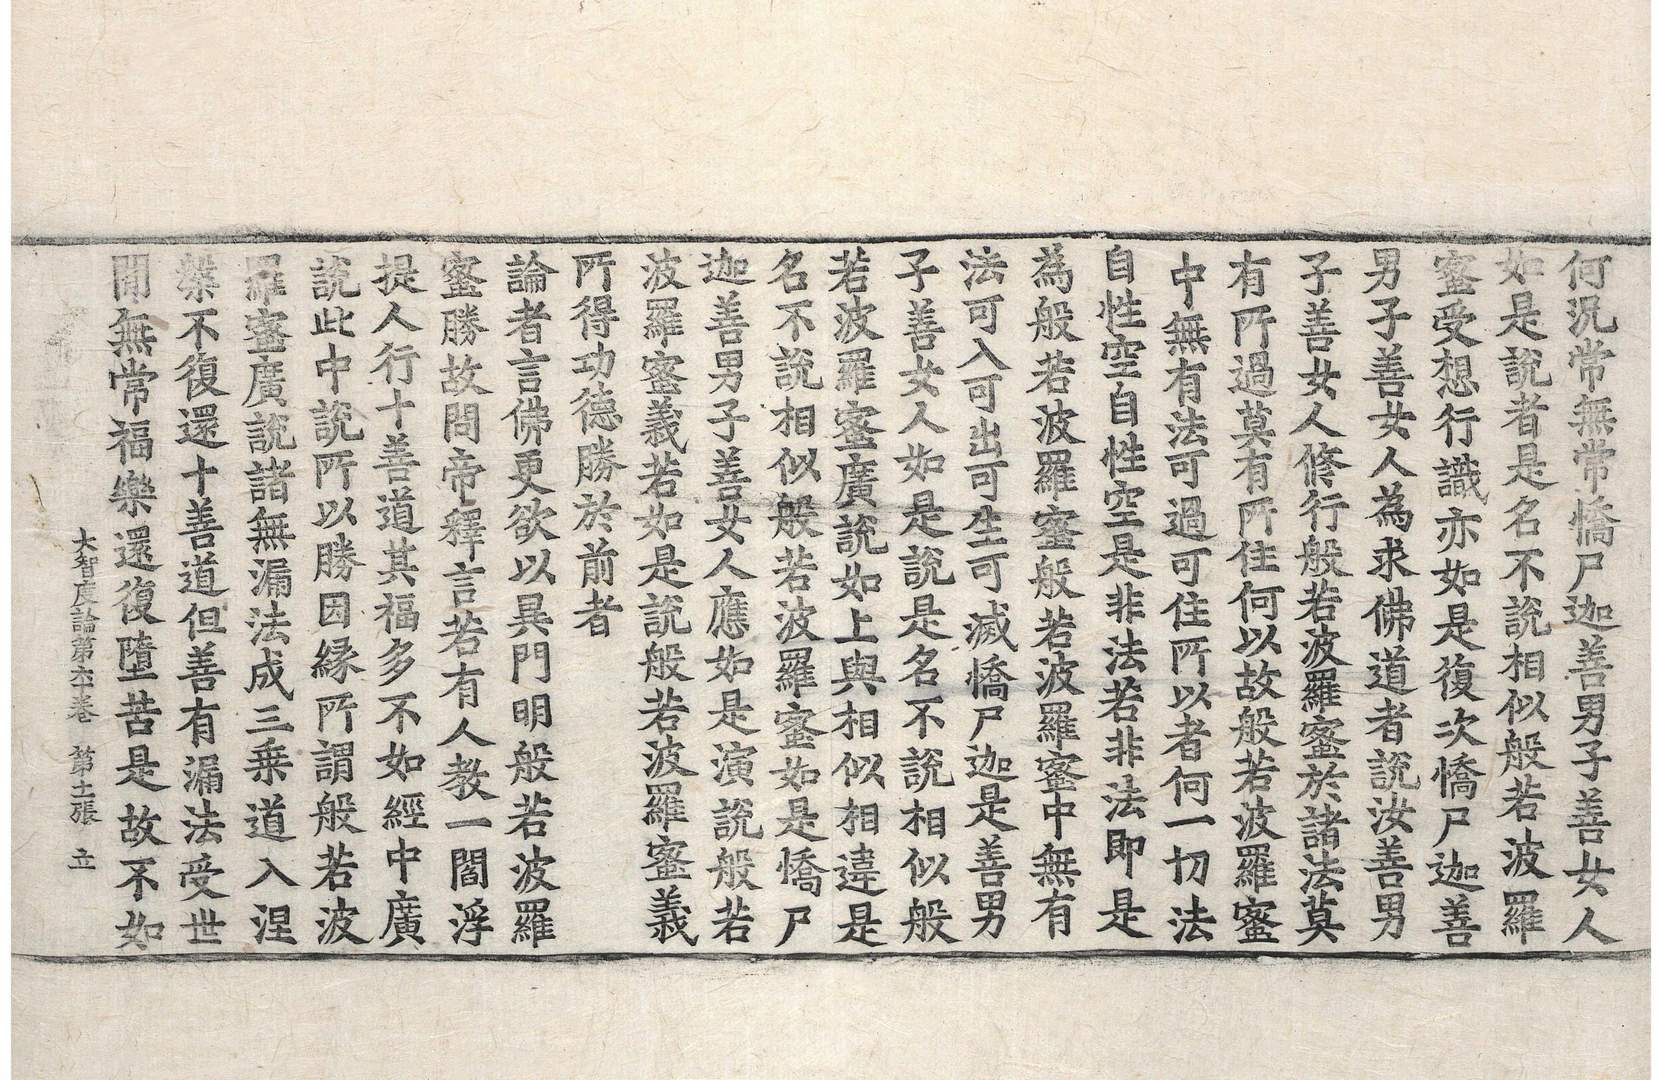 何況常無常憍尸迦善男子善女人
如是說者是名不說相似般若波羅
蜜受想行識亦如是復次憍尸迦善
男子善女人為求佛道者說汝善男
子善女人修行般若波羅蜜於諸法莫
有所過莫有所住何以故般若波羅蜜
中無有法可過可住所以者何一切法
自性空自性空是非法若非法即是
為般若波羅蜜般若波羅蜜中無有
法可入可出可生可滅憍尸迦是善男
子善女人如是說是名不說相似般
若波羅蜜廣說如上與相似相違是
名不說相似般若波羅蜜如是憍尸
迦善男子善女人應如是演說般若
波羅蜜義若如是說般若波羅蜜義
所得功德勝於前者
論者言佛更欲以異門明般若波羅
蜜勝故問帝釋言若有人教一閻浮
提人行十善道其福多不如經中廣
說此中說所以勝因緣所謂般若波
羅蜜廣說諸無漏法成三乘道入涅
槃不復還十善道但善有漏法受世
閒無常福樂還復墮苦是故不如
大智度論第六十卷 第十一張 立